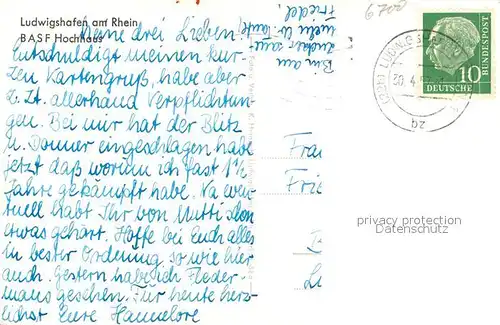 Ludwigshafen am Rhein
BASF Hochhaus
Meine drei Lieben!
Entschuldigt meinen kur-
zen Kartengruß, habe aber
z. Zt. allerhand Verpflichtun-
gen. Bei mir hat der Blitz
u. Donner eingeschlagen, habe
jetzt daß worum ich fast 1½
Jahre gekämpft habe. Na even-
tuell habt Ihr von Mutti schon
etwas gehört. Hoffe bei Euch alles
in bester Ordnung so wie hier
auch. Gestern habe ich Fleder-
maus gesehen. Für heute herz-
lichst Eure Hannelore
Bin am
mein u. Tante
Friedel.
6700
LUDWIGSHAFEN
30.4.
zq
10
DEUTSCHE
BUNDESPOST
Frau
Frie
privacy protection
Datenschutz